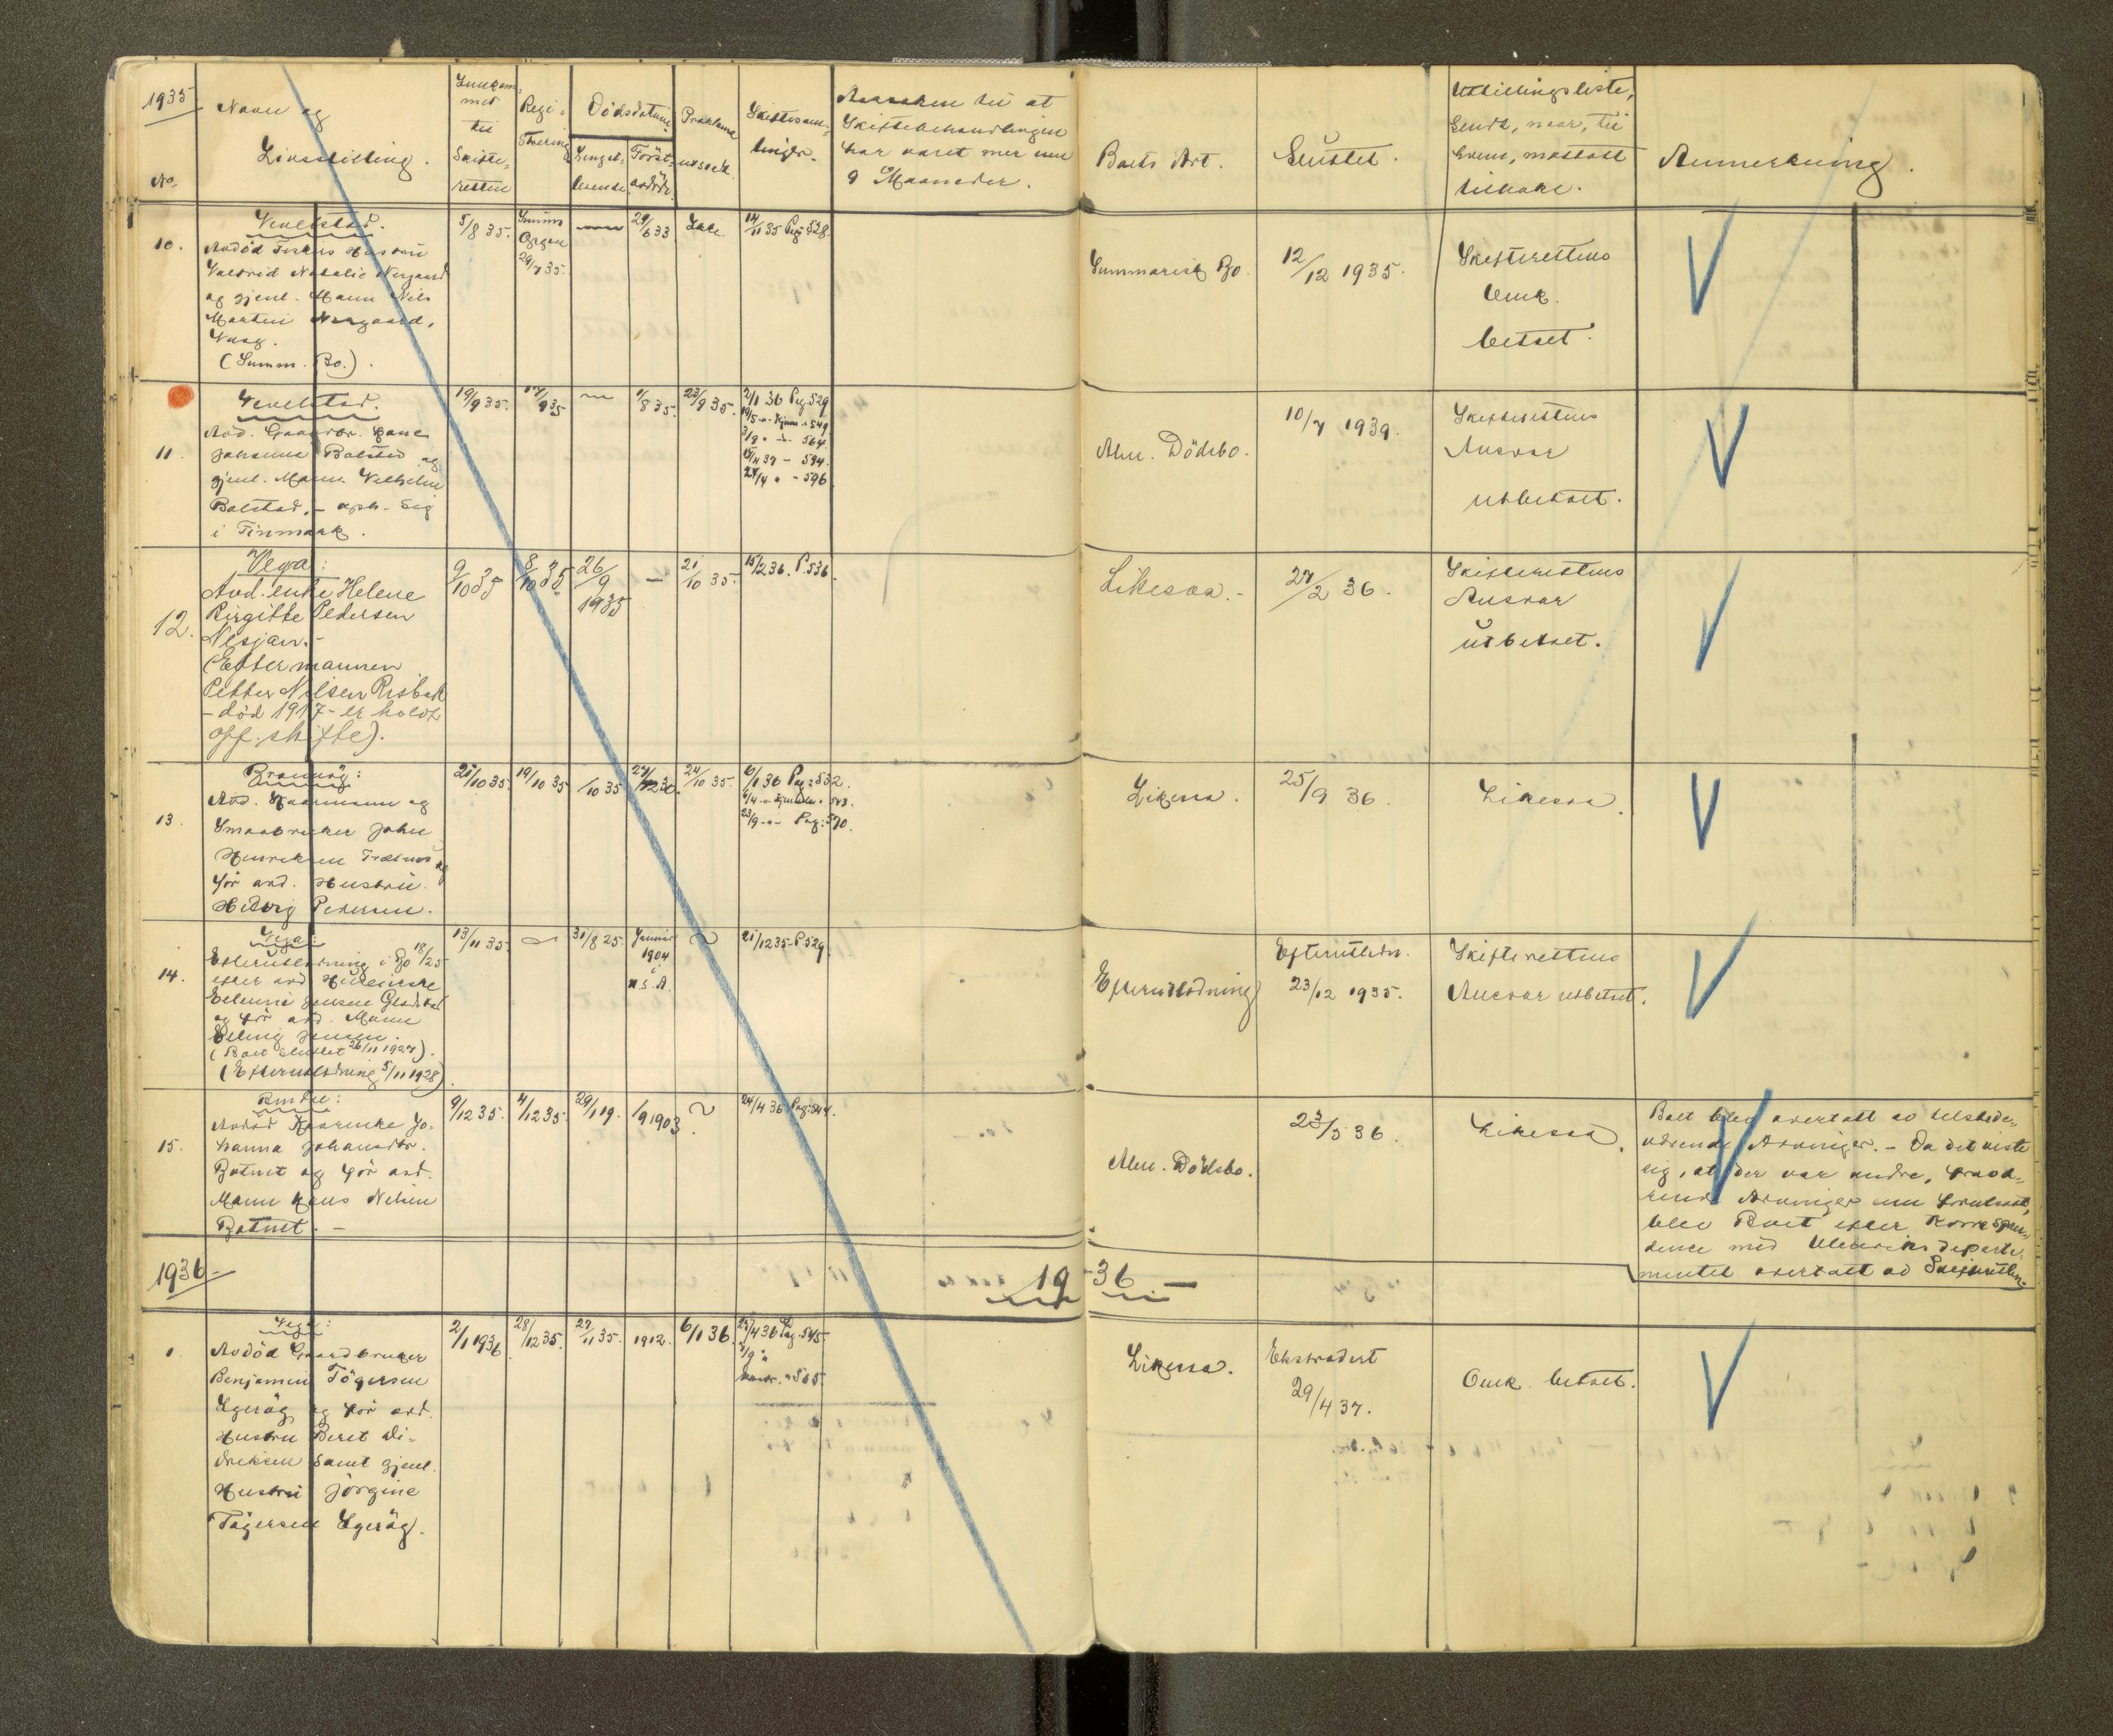 1935
No.
Navn og
Livsstilling.
Innkom-
met
til
Skifte-
retten
Regi-
strering
Dödsdatum
Lengst-
levende
Först-
avdöde
Proklama
utstedt.
Skiftesam-
linger.
Aarsaken til at
Skiftebehandlingen
har varet mer enn
9 Maaneder.
Boets Art.
Sluttet.
Utdelingsliste,
Sendt, naar, til
hvem, mottatt
tilbake.
Anmerkning.
10.
Vevelstad.
Avdöd Fiskers Hustru
Valborid Natalie Nergaard
og gjenl. Mann Nils
Martin Nergaard,
(Summ. Bo.).
5/8 35.
Summ
Opgave
29/7 35.
29/6 33
14/11 35 Pag. 528
Summarisk Bo.
12/12 1935.
Skifterettens
Omk.
betalt.
11.
Vevelstad.
Avd. Gaardbr. Hans
Johansens Bolstad og
gjenl. Mann Vilhelm
Bolstad, - oph. sig
i Finmark.
19/9 35.
17/9 35
1/8 35.
23/9 35.
2/1 36 Pag. 529
19/5 - 549
3/9 " - 564
15/4 37 - 594.
24/4 " - 596
Alm. Dödsbo.
10/7 1939.
Skifterettens
Ansvar
utbetalt.
12.
Vega:
Avd. enke Helene
Birgitte Pedersen
Nesjan.-
(Efter mannen
Petter Nilsen Risbak
- död 1917 - er holdt
off. skifte).
9/10 35
8/10 35
26/9 1935
-
21/10 35.
15/2 36. P. 536.
Likesaa.-
27/2 36.
Skifterettens
Ansvar
utbetalt.
13.
Brönnöy:
Avd. Kaarmann og
Smaabruker Johan
Henriksen Trælnes og
för avd. Hustru
Hedvig Pedersen.
21/10 35.
19/10 35
/10 35
24/10 35.
6/1 36 Pag: 532.
4/4 - 543.
23/9 -"- Pag: 570.
Likesaa.
25/9 36.
Likesaa.
14.
Vega:
Efterutlodning i Bo 18/25
efter avd.
Elling Jensen.
og för avd. Mann
(Boet sluttet 26/11 1927).
(Efterutlodning 5/11 1928).
13/11 35.
31/8 25.
Januar
1904
i
U.S.A.
21/12 35 - P. 529
Efterutlodning
Efterutlodn.
23/12 1935.
Skifterettens
Ansvar utbetalt.
15.
Bindal:
Avdöd Kaarinke Jo-
hanna Johansdtr.
Botnet og för avd.
Mann Hans Nilsen
Botnet. -
9/12 35.
4/12 35.
29/1 19.
/9 1903
24/4 36 Pag: 544.
Alm. Dödsbo.
23/5 36.
Likesaa.
Boet blev overtatt av tilstede-
værende Arvinger. - Da det viste
sig, at der var andre, fravæ-
rende Arvinger enn
blev Boet efter Korrespon-
dence med Utenriksdeparte-
mentet overtatt av Skifteretten.
1936 -
19 - 36 -
1.
Vega:
Avdöd Gaardbruker
Benjamin Tögersen
Igeröy og för avd.
Hustru Beret Di-
driksen samt gjenl.
Hustru Jörgine
Tögersen Igeröy.
2/1 1936
28/12 35.
27/11 35.
1912.
6/1 36
Pag. 545.
Likesaa.
Ekstradert
29/4 37.
Omk. betalt.